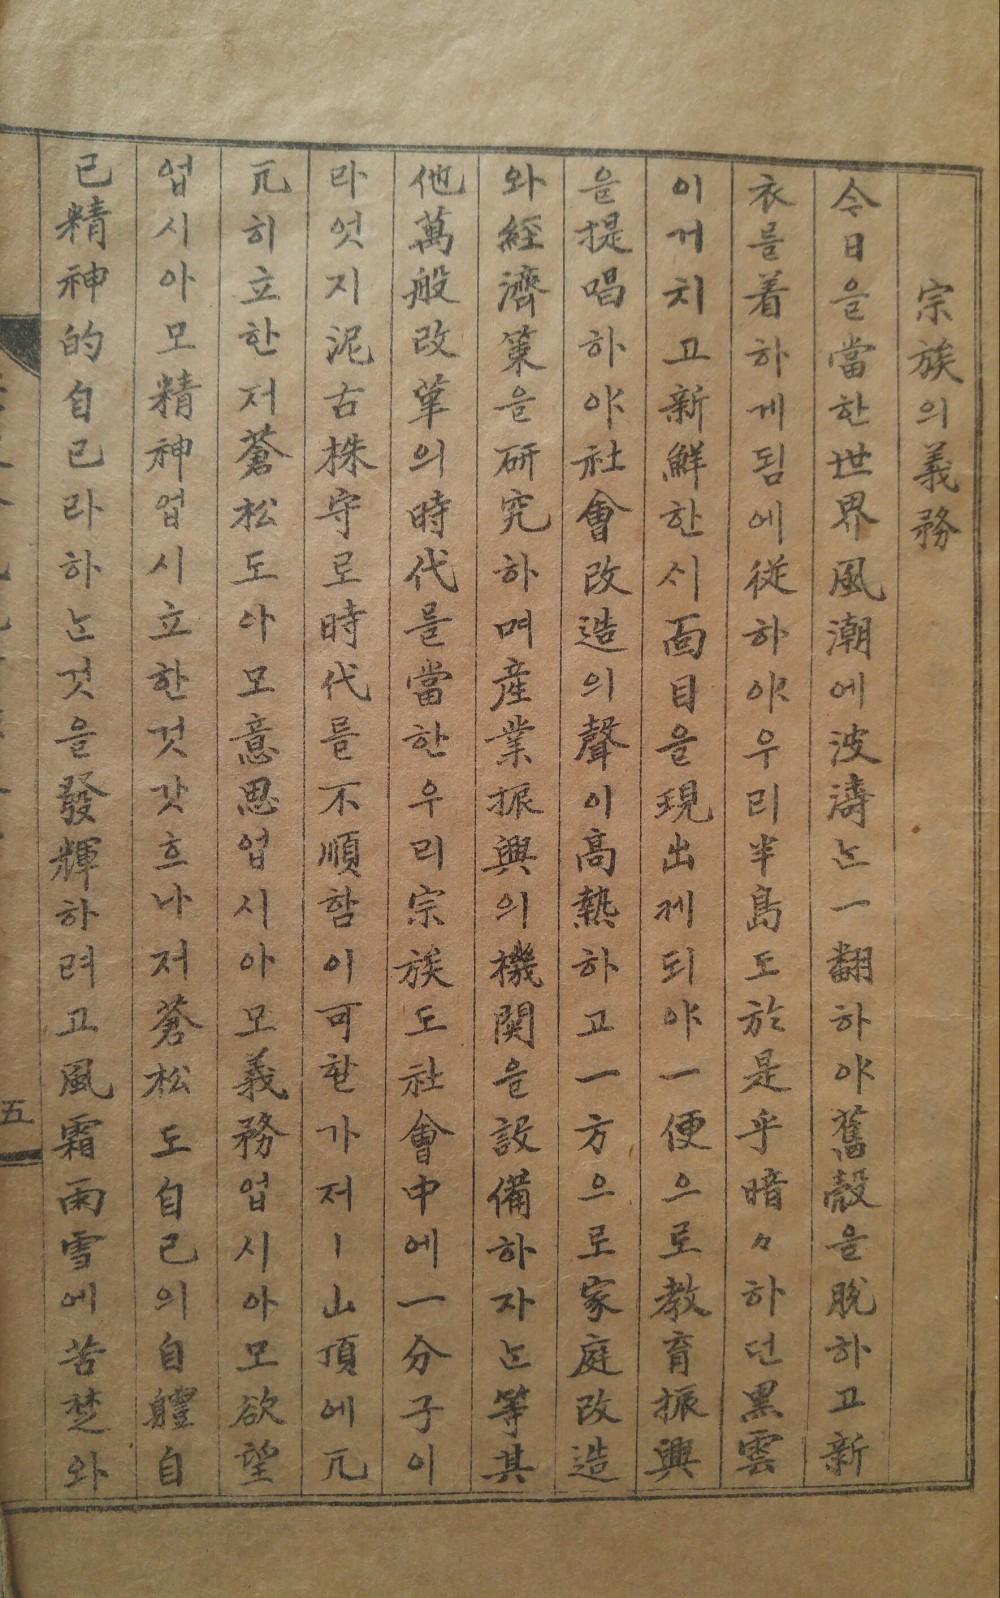 宗族의義務
今日을當한世界風潮에波濤는一翻하야舊殼을脫하고新
衣를着하게됨에從하야우리半島도於是乎暗々하던黑雲
이거치고新鮮한시面目을現出케되야一便으로敎育振興
을提唱하야社會改造의聲이高熱하고一方으로家庭改造
와經濟策을硏究하며産業振興의機關을設備하자는等其
他萬般改革의時代를當한우리宗族도社會中에一分子이
라엇지泥古株守로時代를不順함이可할가저ㅣ山頂에兀
兀히立한저蒼松도아모意思업시아모義務업시아모欲望
업시아모精神업시立한것갓흐나저蒼松도自己의自軆自
己精神的自己라하는것을發輝하려고風霜雨雪에苦楚와
五